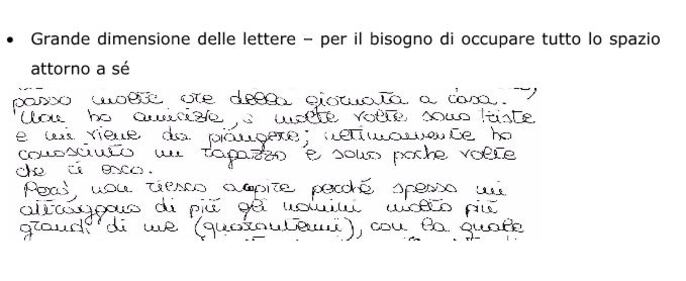 • Grande dimensione delle lettere – per il bisogno di occupare tutto lo spazio
attorno a sé
passo molte ore della giornata a casa.
Non ho amicizie, e molte volte sono triste
e mi viene da piangere; ultimamente ho
conosciuto un ragazzo e sono poche volte
che ci esco.
Però, non riesco a capire perché spesso mi
attraggono di più gli uomini molto più
grandi di me (quarantenni), con la quale